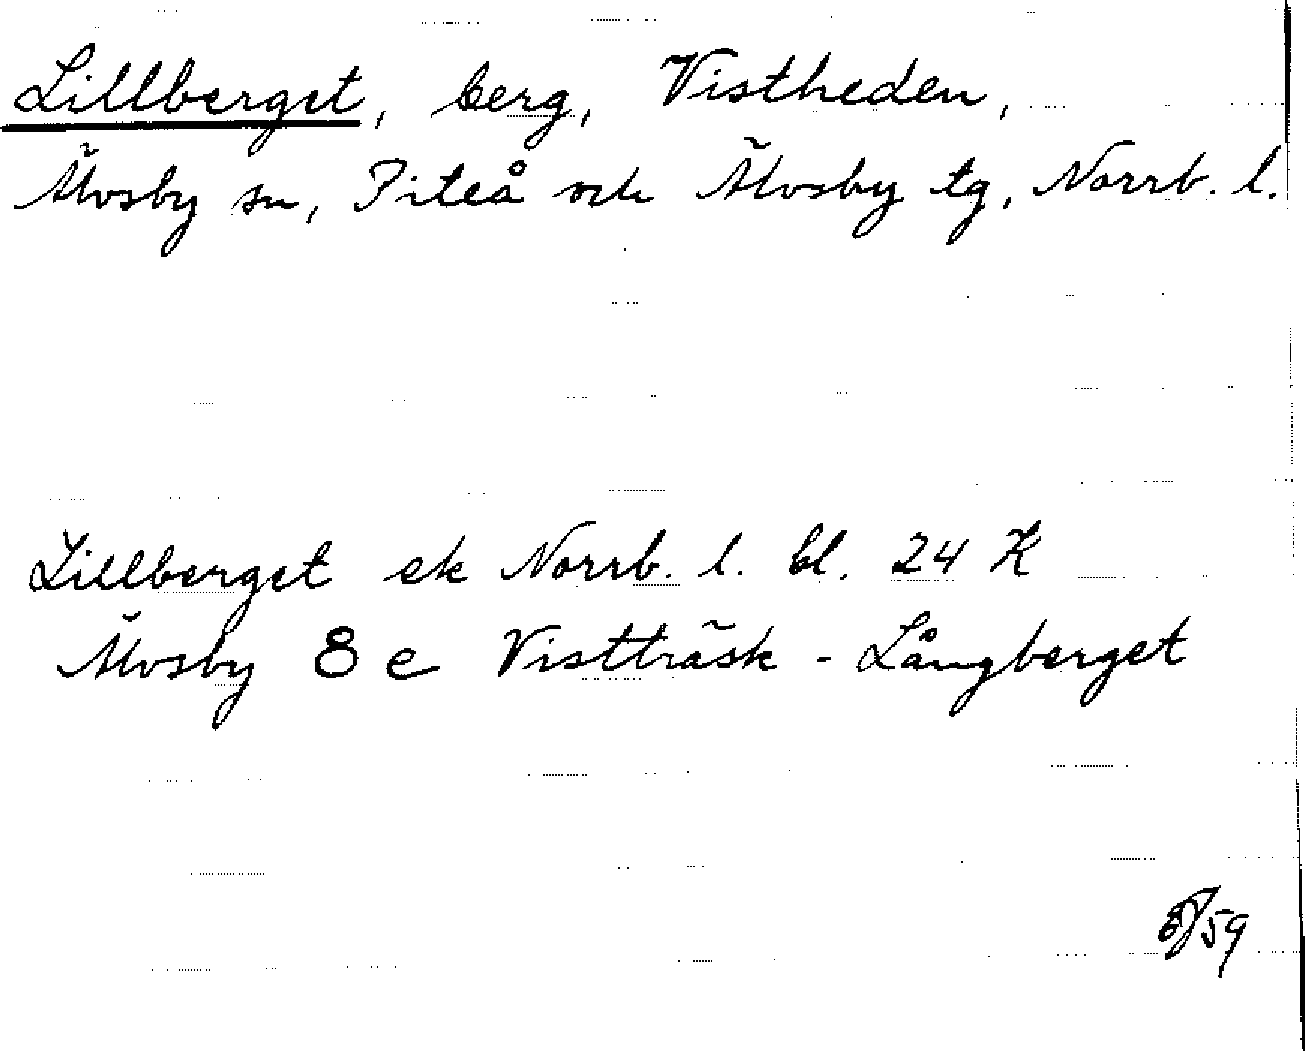 Lillberget, berg, Vistheden,
Älvsby sn, Piteå och Älvsby tg, Norrb. l.
Lillberget ek Norrb. l. bl. 24 K
Älvsby 8 e Vistträsk - Långberget
59